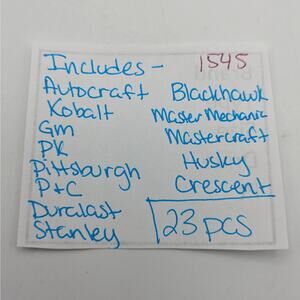 Includes -
1545
Autocraft
Kobalt
Gm
PK
Pittsburgh
P+C
Duralast
Stanley
Blackhawk
Master Mechanic
Mastercraft
Husky
Crescent
23 pcs